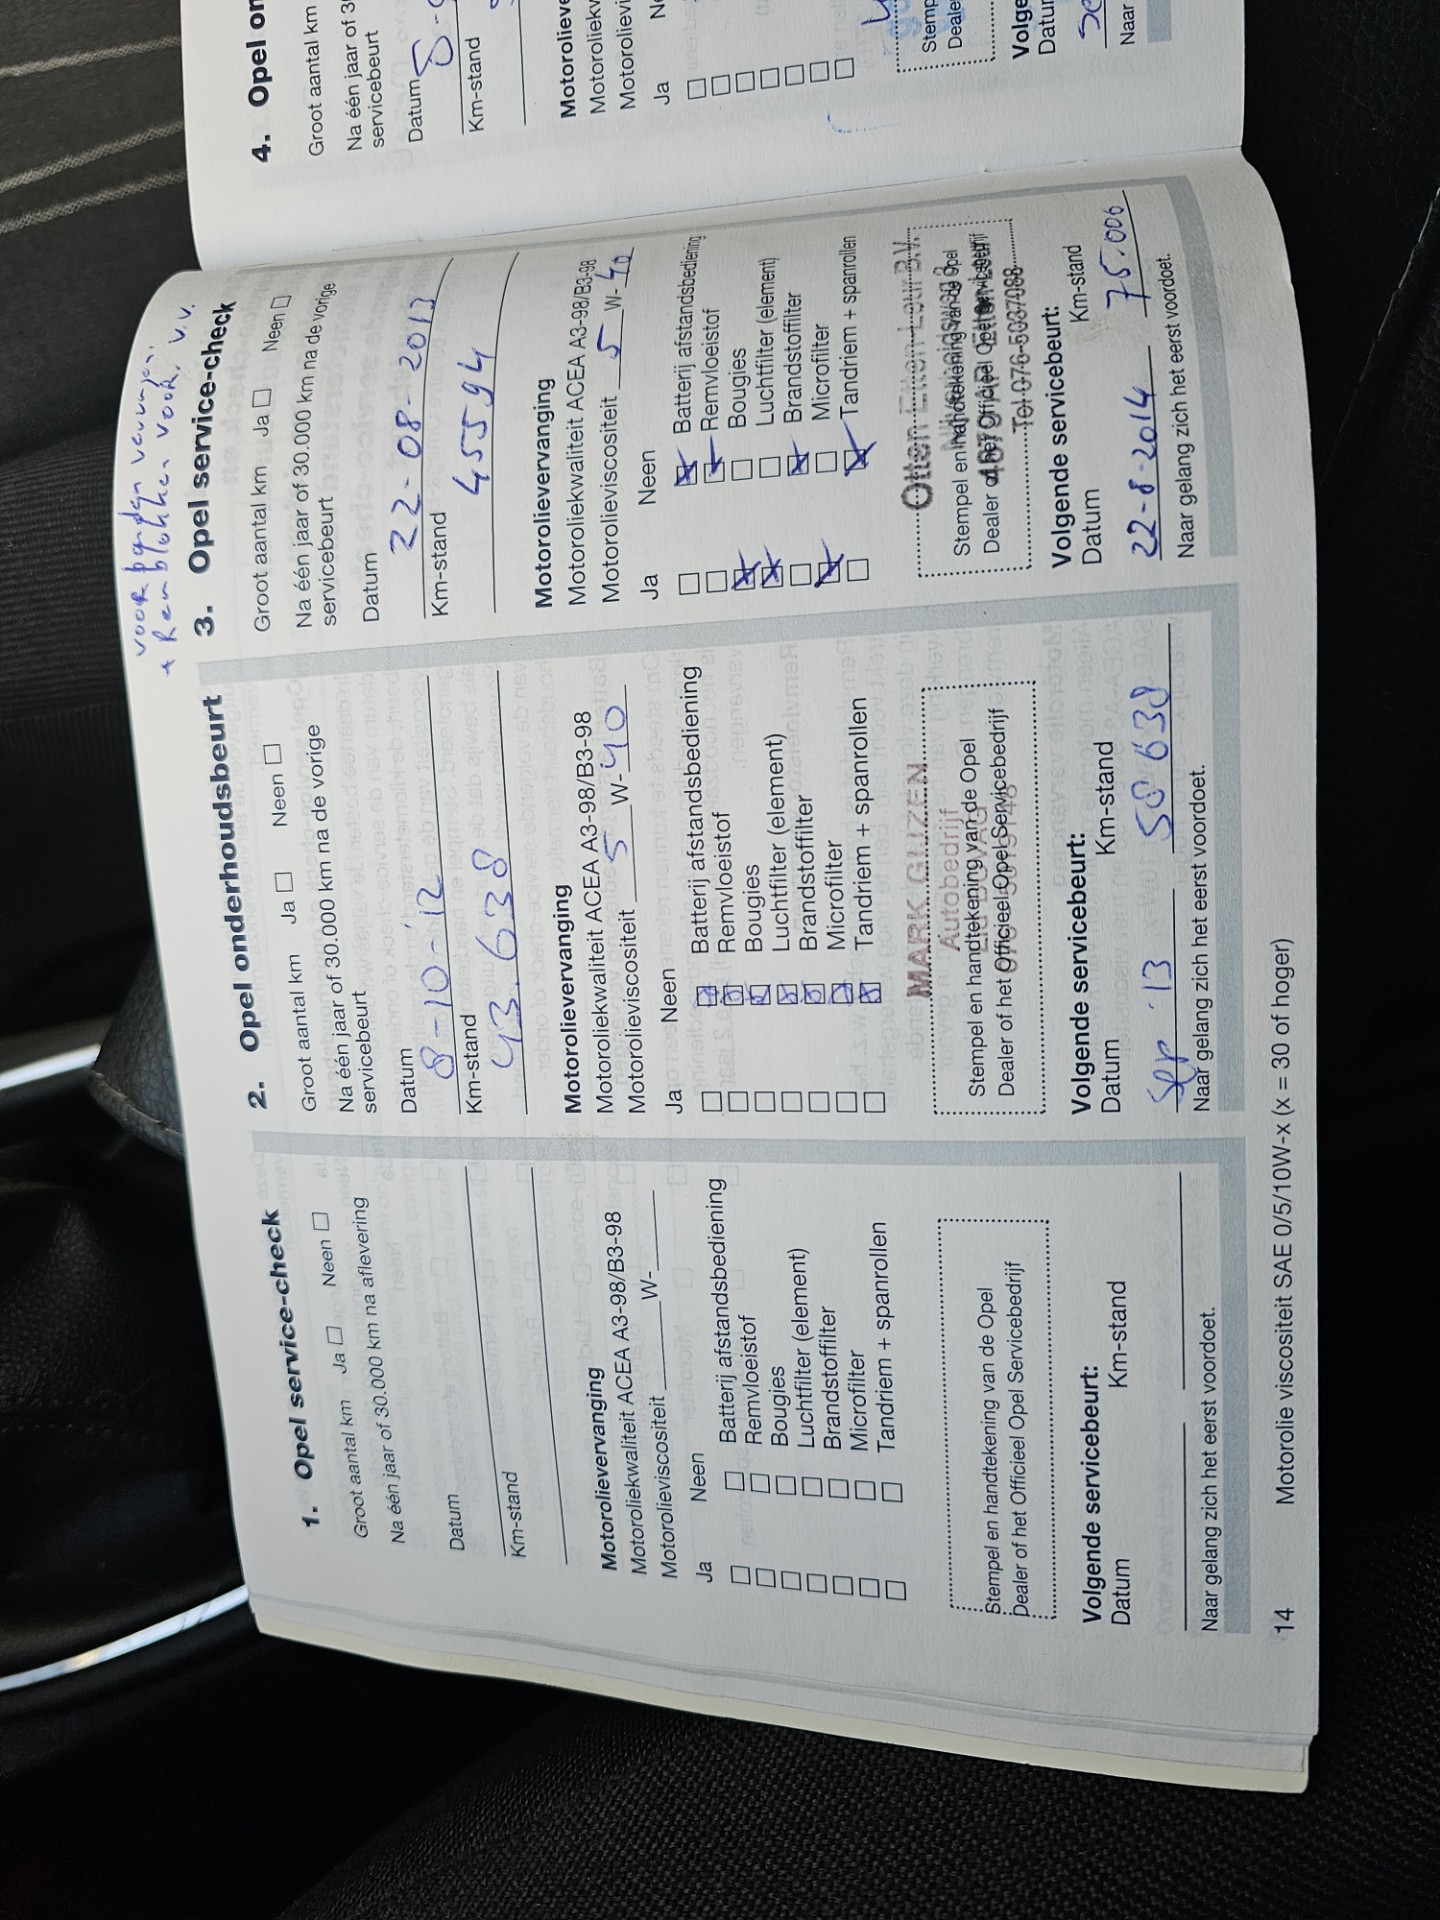 1. Opel service-check
Groot aantal km Ja Neen
Na één jaar of 30.000 km na aflevering
Datum
Km-stand
Motorolievervanging
Motoroliekwaliteit ACEA A3-98/B3-98
Motorolieviscositeit W-
Ja Neen
Batterij afstandsbediening
Remvloeistof
Bougies
Luchtfilter (element)
Brandstoffilter
Microfilter
Tandriem + spanrollen
Stempel en handtekening van de Opel
Dealer of het Officieel Opel Servicebedrijf
Volgende servicebeurt:
Datum Km-stand
Naar gelang zich het eerst voordoet.
2. Opel onderhoudsbeurt
Groot aantal km Ja Neen
Na één jaar of 30.000 km na de vorige
servicebeurt
Datum
8-10-'12
Km-stand
43.638
Motorolievervanging
Motoroliekwaliteit ACEA A3-98/B3-98
Motorolieviscositeit 5 W-40
Ja Neen
Batterij afstandsbediening
Remvloeistof
Bougies
Luchtfilter (element)
Brandstoffilter
Microfilter
Tandriem + spanrollen
MARK GIJZEN
Autobedrijf
Stempel en handtekening van de Opel
Dealer of het Officieel Opel Servicebedrijf
Volgende servicebeurt:
Datum Km-stand
Sep '13 58 638
Naar gelang zich het eerst voordoet.
voor banden
+ Remblokken voor. v.v.
3. Opel service-check
Groot aantal km Ja Neen
Na één jaar of 30.000 km na de vorige
servicebeurt
Datum
22-08-2013
Km-stand
45594
Motorolievervanging
Motoroliekwaliteit ACEA A3-98/B3-98
Motorolieviscositeit 5 W-40
Ja Neen
Batterij afstandsbediening
Remvloeistof
Bougies
Luchtfilter (element)
Brandstoffilter
Microfilter
Tandriem + spanrollen
Otten Etten-Leur B.V.
Stempel en handtekening van de Opel
Dealer of het Officieel Opel Servicebedrijf
Tel 076-5037088
Volgende servicebeurt:
Datum Km-stand
22-8-2014 75.006
Naar gelang zich het eerst voordoet.
4. Opel on
Groot aantal km
Na één jaar of 30
servicebeurt
Datum
Km-stand
Motorolieve
Motoroliekw
Motorolievi
Ja
Stemp
Deale
Volge
Datur
Naar
14 Motorolie viscositeit SAE 0/5/10W-x (x = 30 of hoger)